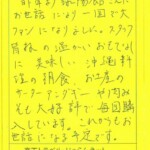 昨年より銀嶺館さんに
お世話になり一回で大
ファンになりました。スタッフ
皆様の温かいおもてなし
に美味しい沖縄料
理の朝食、お土産の
サーターアンダギーや肉み
そも大好評で毎回購
入しています。これからもお
世話になる予定です。